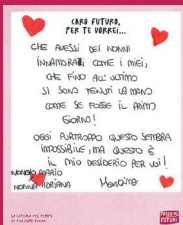 CARO FUTURO,
PER TE VORREI...
CHE AVESSI DEI NONNI
INNAMORATI COME I MIEI,
CHE FINO ALL'ULTIMO
SI SONO TENUTI LA MANO
COME SE FOSSE IL PRIMO
GIORNO!
OGGI PURTROPPO QUESTO SEMBRA
IMPOSSIBILE, MA QUESTO È
IL MIO DESIDERIO PER VOI!
NONNO
NONNA ADRIANA
LA CAPSULA DEL TEMPO